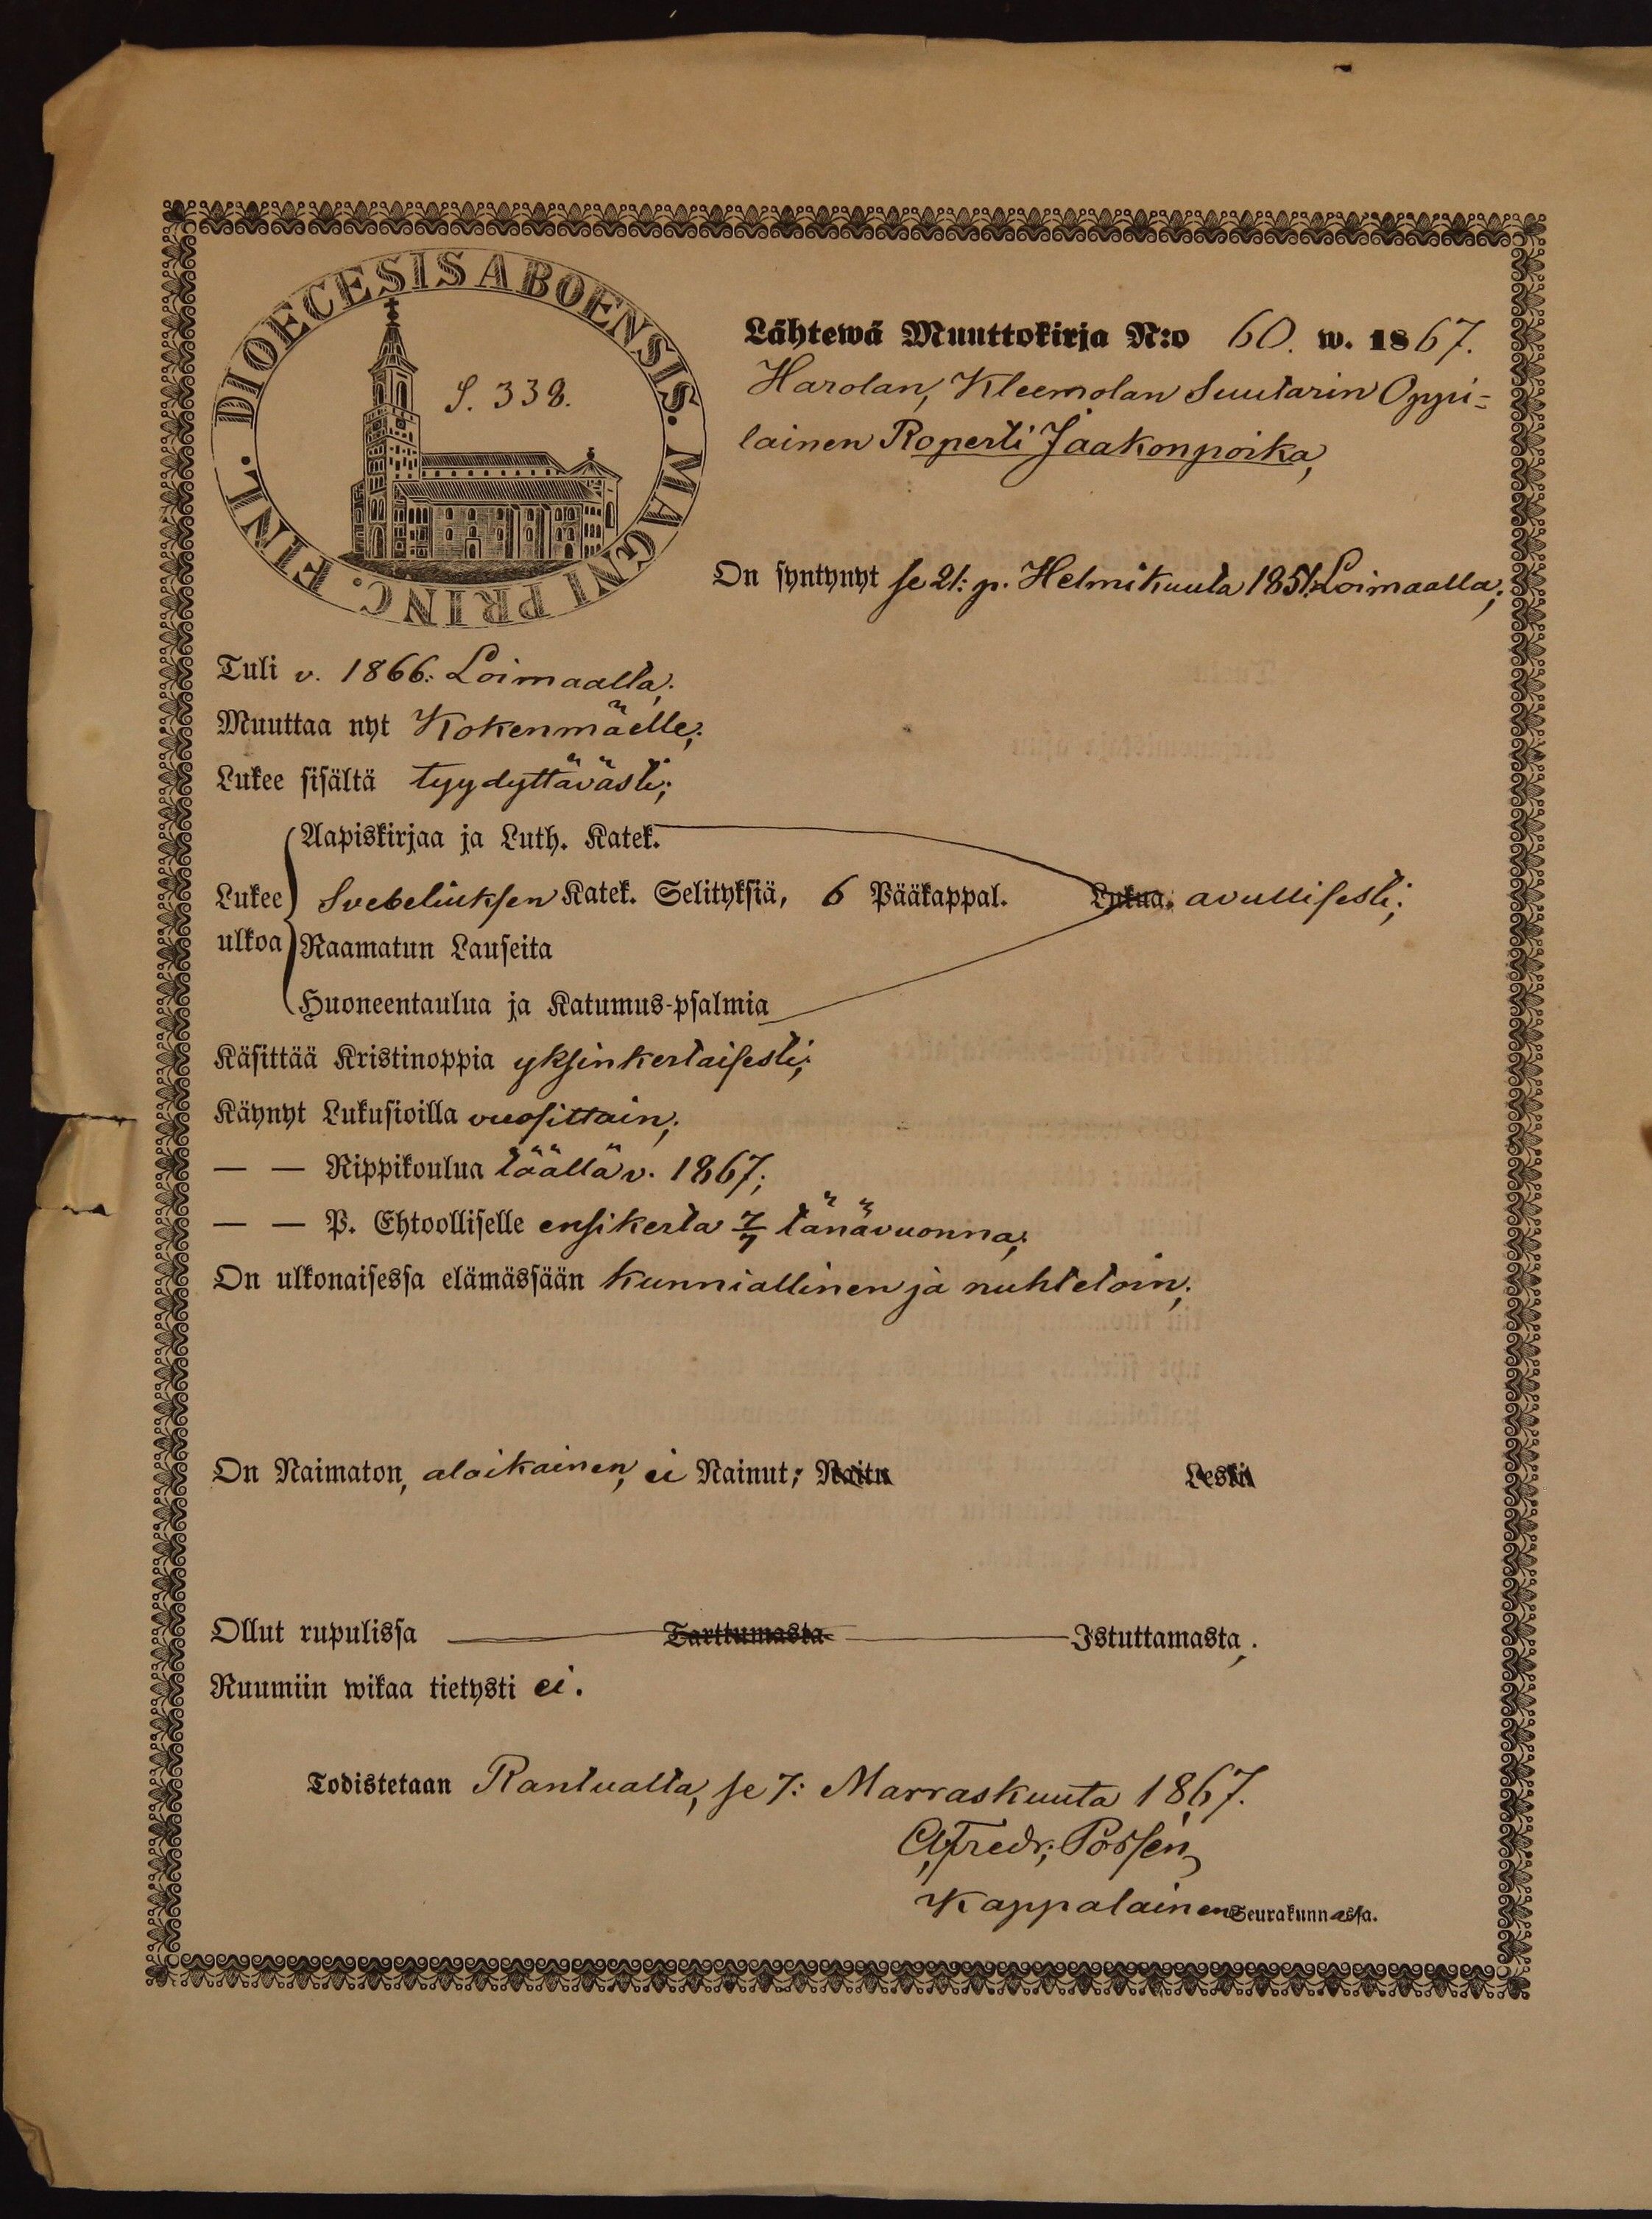 DIOECESIS ABOENSIS. MAGNI PRINC. FINL.
S. 338.
Lähtewä Muuttokirja N:o 60. w. 1867.
Harolan, Kleemolan Suutarin Oppi-
lainen Roperti Jaakonpoika,
On syntynyt se 21: p. Helmikuuta 1851. Loimaalla;
Tuli v. 1866: Loimaalta;
Muuttaa nyt Kokenmäelle;
Lukee sisältä tyydyttävästi;
Aapiskirjaa ja Luth. Katek.
Lukee Svebeliuksen Katek. Selityksiä, 6 Pääkappal. Lukua. avullisesti;
ulkoa Raamatun Lauseita
Huoneentaulua ja Katumus-psalmia
Käsittää Kristinoppia yksinkertaisesti;
Käynyt Lukusioilla vuosittain;
— — Rippikoulua täällä v. 1867;
— — P. Ehtoolliselle ensikerta 7/7 tänävuonna;
On ulkonaisessa elämässään kunniallinen ja nuhtetoin;
On Naimaton, alaikainen, ei Nainut; Naitu Leski
Ollut rupulissa Tarttumasta Istuttamasta;
Ruumiin wikaa tietysti ei.
Todistetaan se 7: Marraskuuta 1867.
Fredr;
Kappalainen Seurakunnassa.